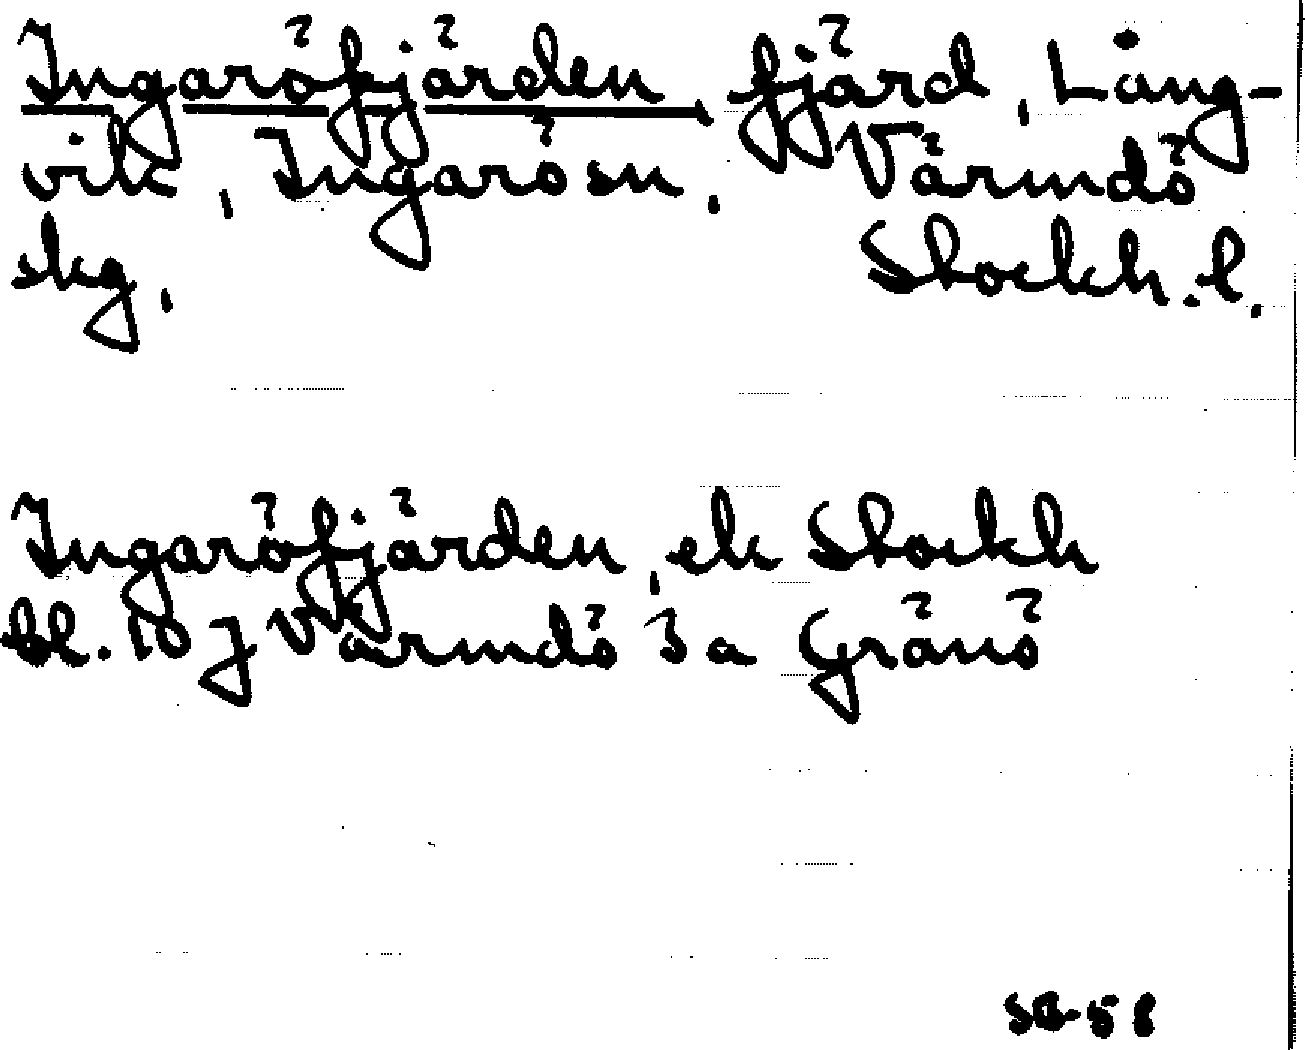 Ingaröfjärden, fjärd, Lång-
vik, Ingarö sn, Värmdö
skg, Stockh. l.
Ingaröfjärden, ek Stockh
bl. 10 J Värmdö 3 a Gränö